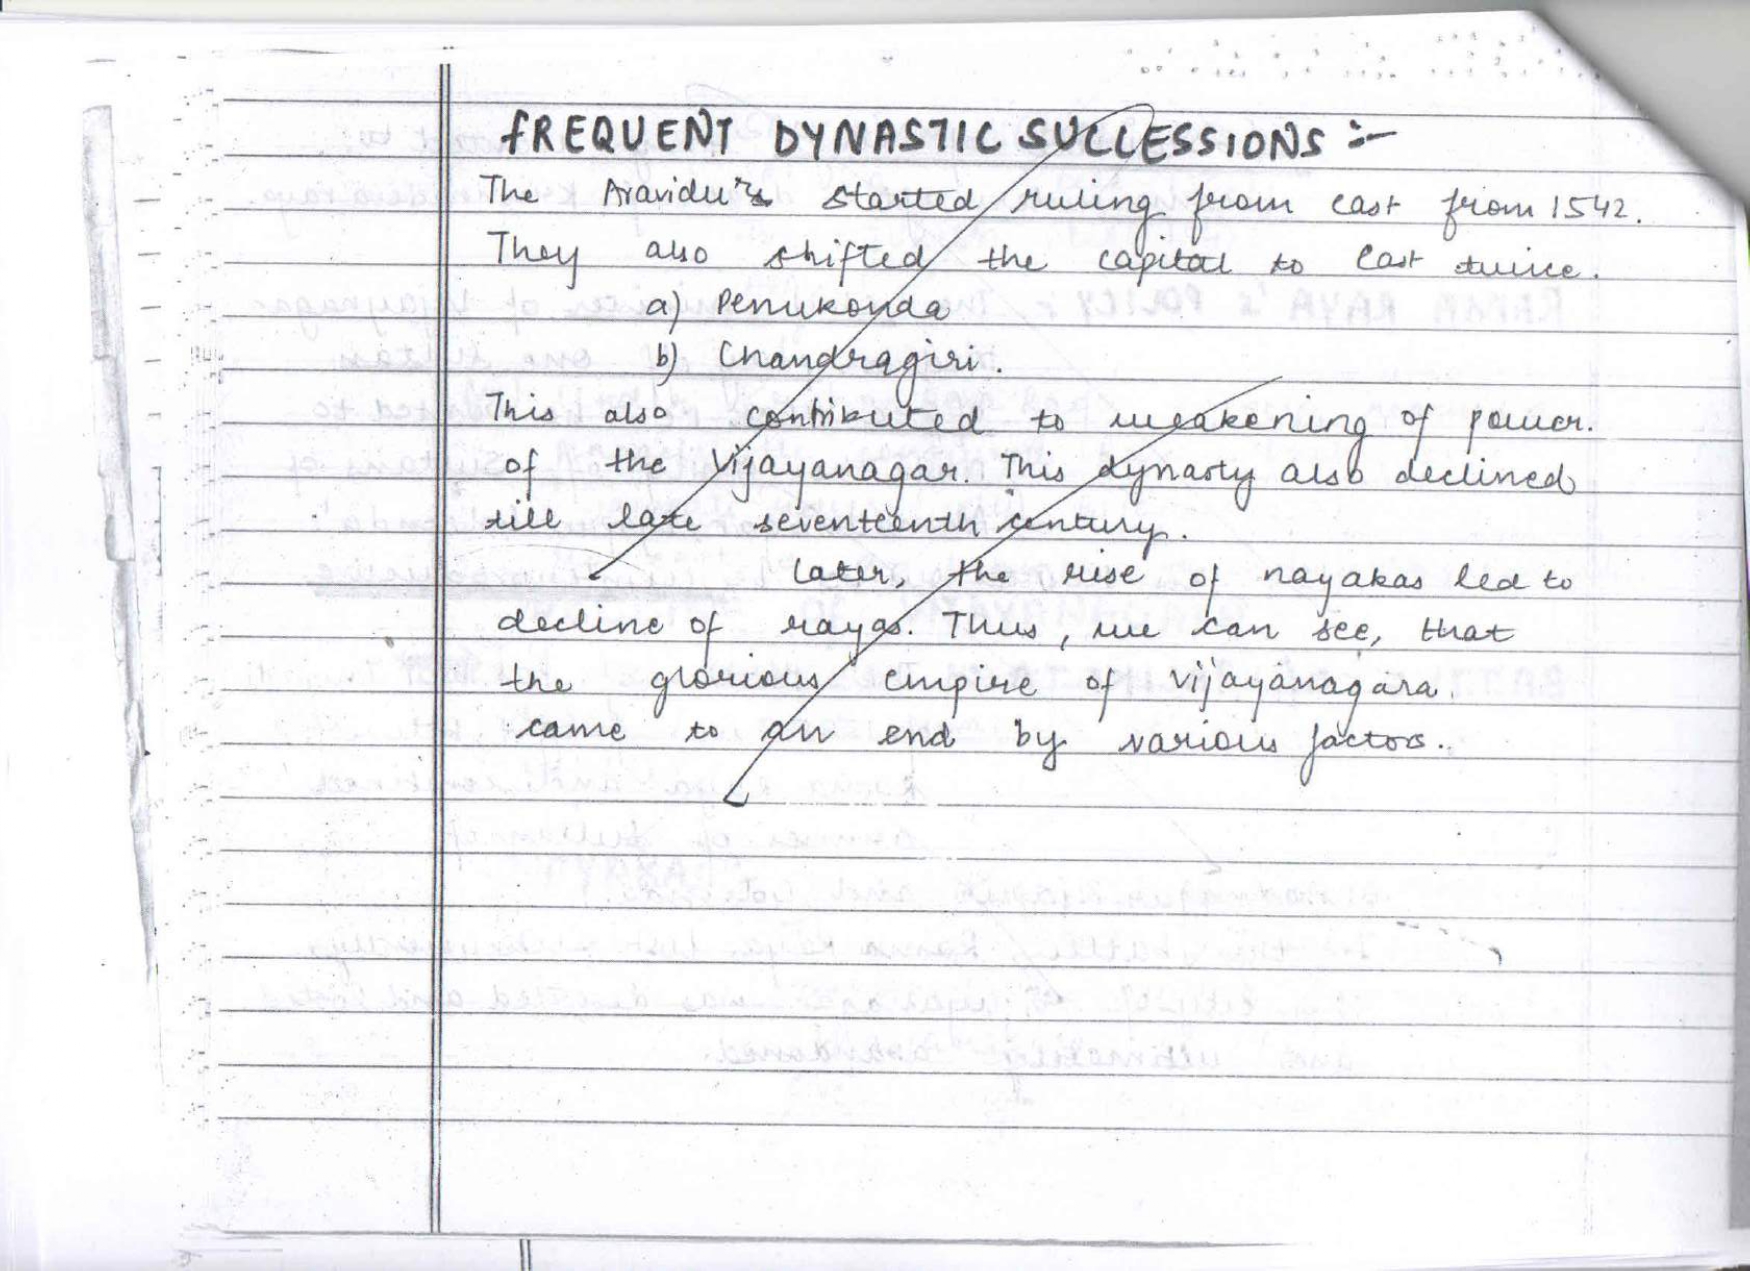 FREQUENT DYNASTIC SUCCESSIONS :-
The Aravidu's started ruling from east from 1542.
They also shifted the capital to East twice.
a) Penukonda
b) Chandragiri.
This also contributed to weakening of power.
of the Vijayanagar. This dynasty also declined
till late seventeenth century.
Later, the rise of nayakas led to
decline of rayas. Thus, we can see, that
the glorious empire of vijayanagara.
came to an end by various factors.